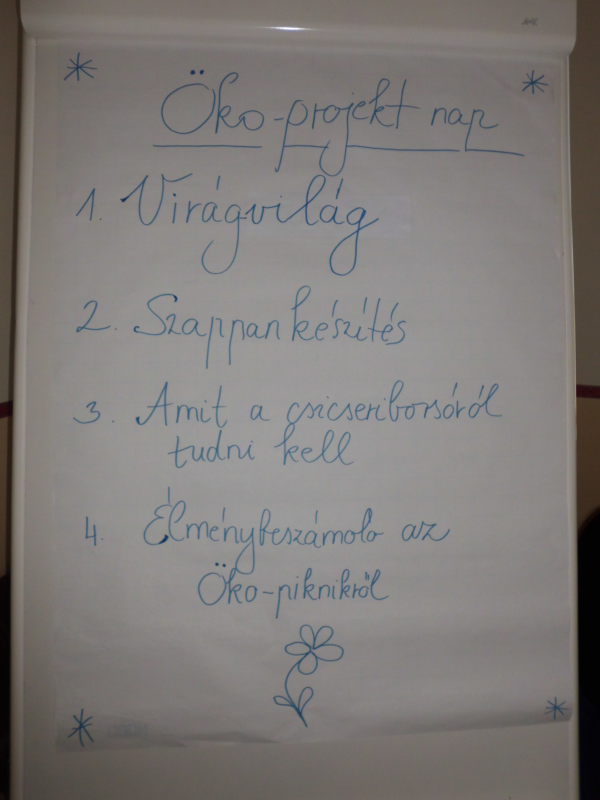 Öko-projekt nap
1. Virágvilág
2. Szappankészítés
3. Amit a csicseriborsóról
tudni kell
4. Élménybeszámoló az
Öko-piknikről